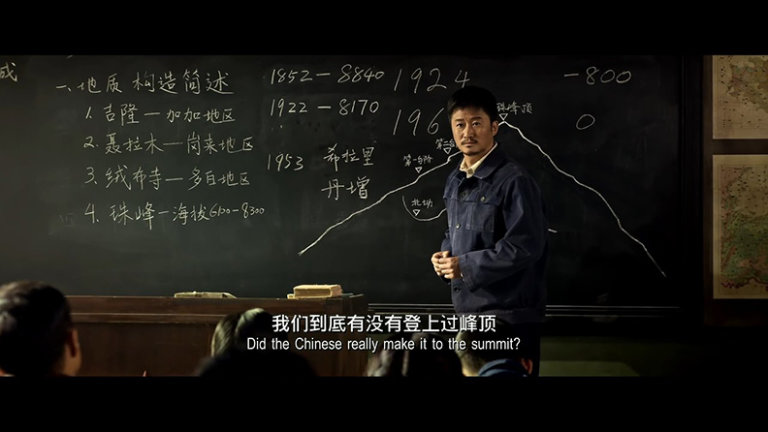 成
一、地质构造简述
1. 吉隆—加加地区
2. 聂拉木—岗来地区
3. 绒布寺—多自地区
4. 珠峰—海拔6100-8300
1852—8840
1922—8170
1953 希拉里
丹增
1924 -800
196 0
珠峰顶
第二台
第一台阶
北坳
我们到底有没有登上过峰顶
Did the Chinese really make it to the summit?